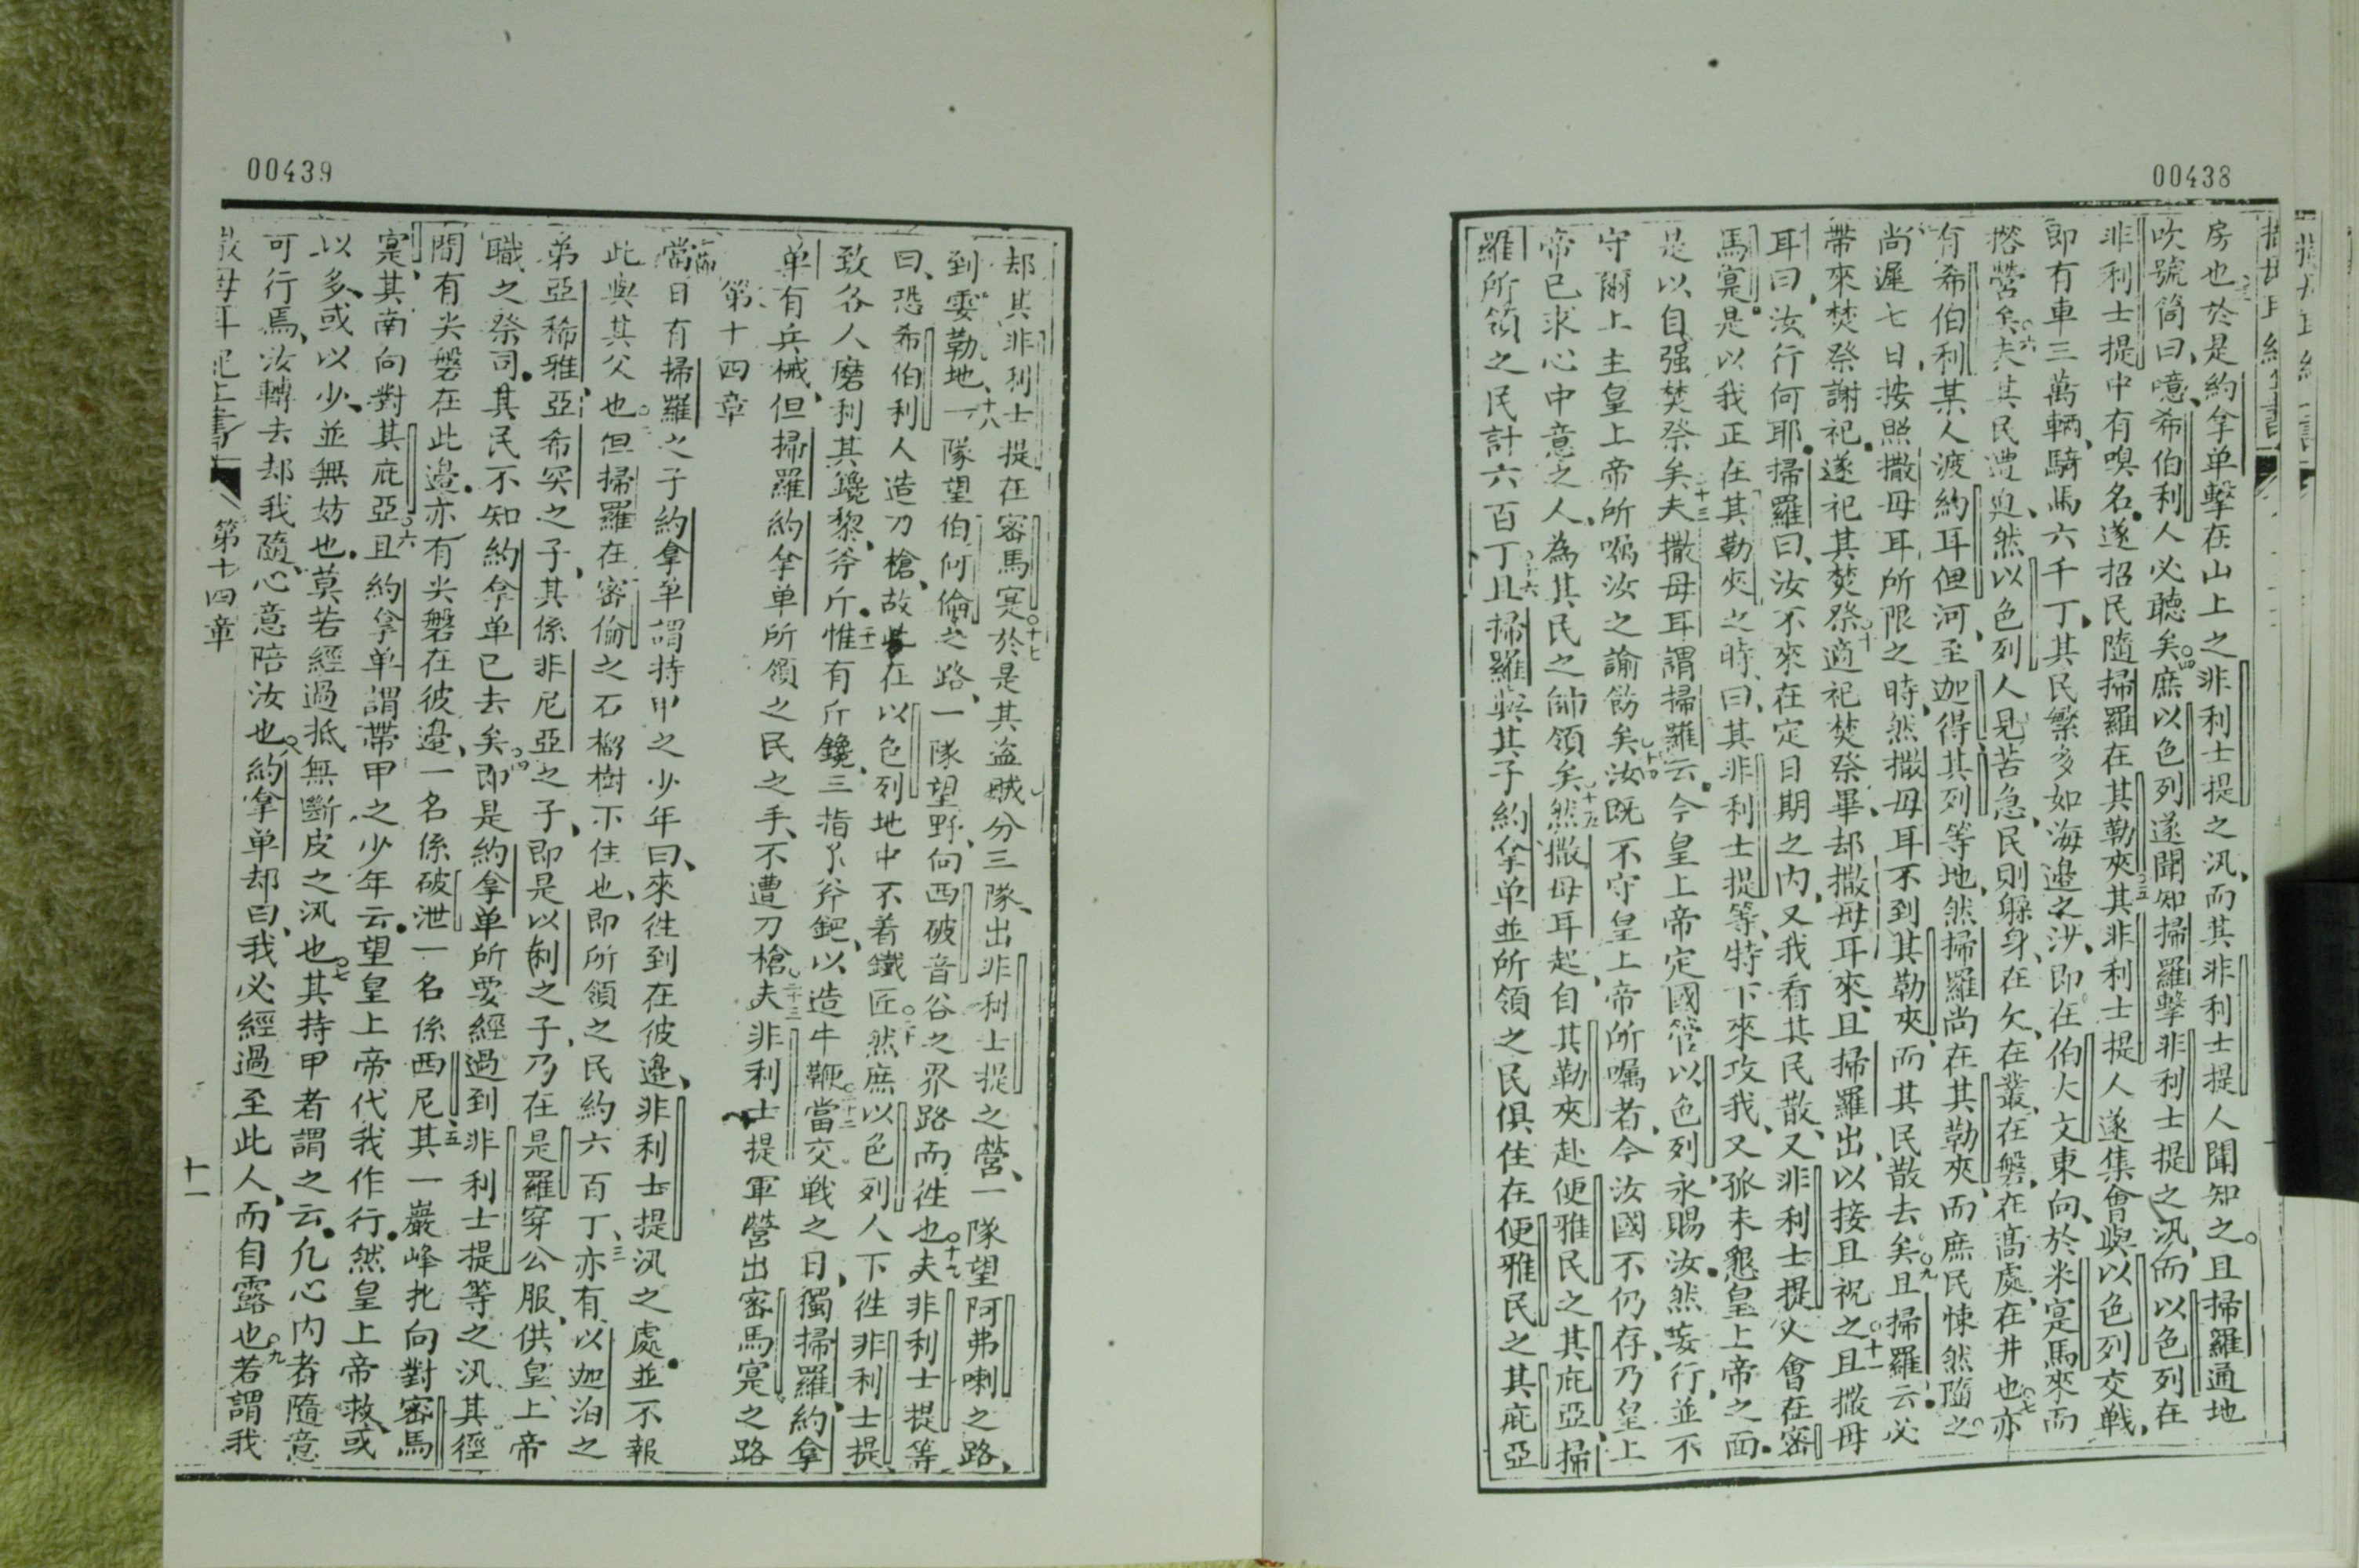 00438
房也於是約拿单擊在山上之非利士提之汛而其非利士提人聞知之且掃羅通地
吹號筒曰噫希伯利人必聽矣庶以色列遂聞知掃羅擊非利士提之汛而以色列在
非利士提中有嗅名遂招民隨掃羅在其勒夾其非利士提人遂集會與以色列交戰
即有車三萬輛騎馬六千丁其民繁多如海邊之沙即在伯大文東向於米寔馬來而
搭營矣夫其民遭迫然以色列人見苦急民則躲身在欠在叢在磐在髙處在井也亦
有希伯利某人渡約耳但河至迦得其列等地然掃羅尚在其勒夾而庶民悚然隨之
尚遲七日按照撒母耳所限之時然撒母耳不到其勒夾而其民散去矣且掃羅云必
帶來焚祭謝祀遂祀其焚祭適祀焚祭畢却撒母耳來且掃羅出以接且祝之且撒母
耳曰汝行何耶掃羅曰汝不來在定日期之内又我看其民散又非利士提人會在密
馬寔是以我正在其勒夾之時曰其非利士提等特下來攻我又孤未懇皇上帝之面
是以自强焚祭矣夫撒母耳謂掃羅云今皇上帝定國管以色列永賜汝然妄行並不
守爾上主皇上帝所嘱汝之諭飭矣汝既不守皇上帝所嘱者今汝國不仍存乃皇上
帝已求心中意之人為其民之帥領矣然撒母耳起自其勒夾赴便雅民之其庇亞掃
羅所領之民計六百丁且掃羅與其子約拿单並所領之民俱住在便雅民之其庇亞
00439
却其非利士提在密馬寔於是其盗賊分三隊出非利士提之營一隊望阿弗喇之路
到耍勒地一隊望伯何倫之路一隊望野向西破音谷之界路而徃也夫非利士提等
曰恐希伯利人造刀槍故此在以色列地中不着鐵匠然庶以色列人下徃非利士提
致各人磨利其鑱犂斧斤惟有斤鑱三指斧鈀以造牛鞭當交戰之日獨掃羅約拿
单有兵械但掃羅約拿单所領之民之手不遭刀槍夫非利士提軍營出密馬寔之路
第十四章
當日有掃羅之子約拿单謂持甲之少年曰來徃到在彼邊非利士提汛之處並不報
此與其父也但掃羅在密倫之石榴樹下住也即所領之民約六百丁亦有以迦泊之
弟亞稀雅亞希突之子其係非尼亞之子即是以利之子乃在是羅穿公服供皇上帝
職之祭司其民不知約拿单已去矣即是約拿单所要經過到非利士提等之汛其徑
間有尖磐在此邊亦有尖磐在彼邊一名係破泄一名係西尼其一巖峰扎向對密馬
寔其南向對其庇亞且約拿单謂帶甲之少年云望皇上帝代我作行然皇上帝救或
以多或以少並無妨也莫若經過抵無斷皮之汛也其持甲者謂之云凢心内者隨意
可行焉汝轉去却我隨心意陪汝也約拿单却曰我必經過至此人而自露也若謂我
撒母耳記上書 第十四章 十一